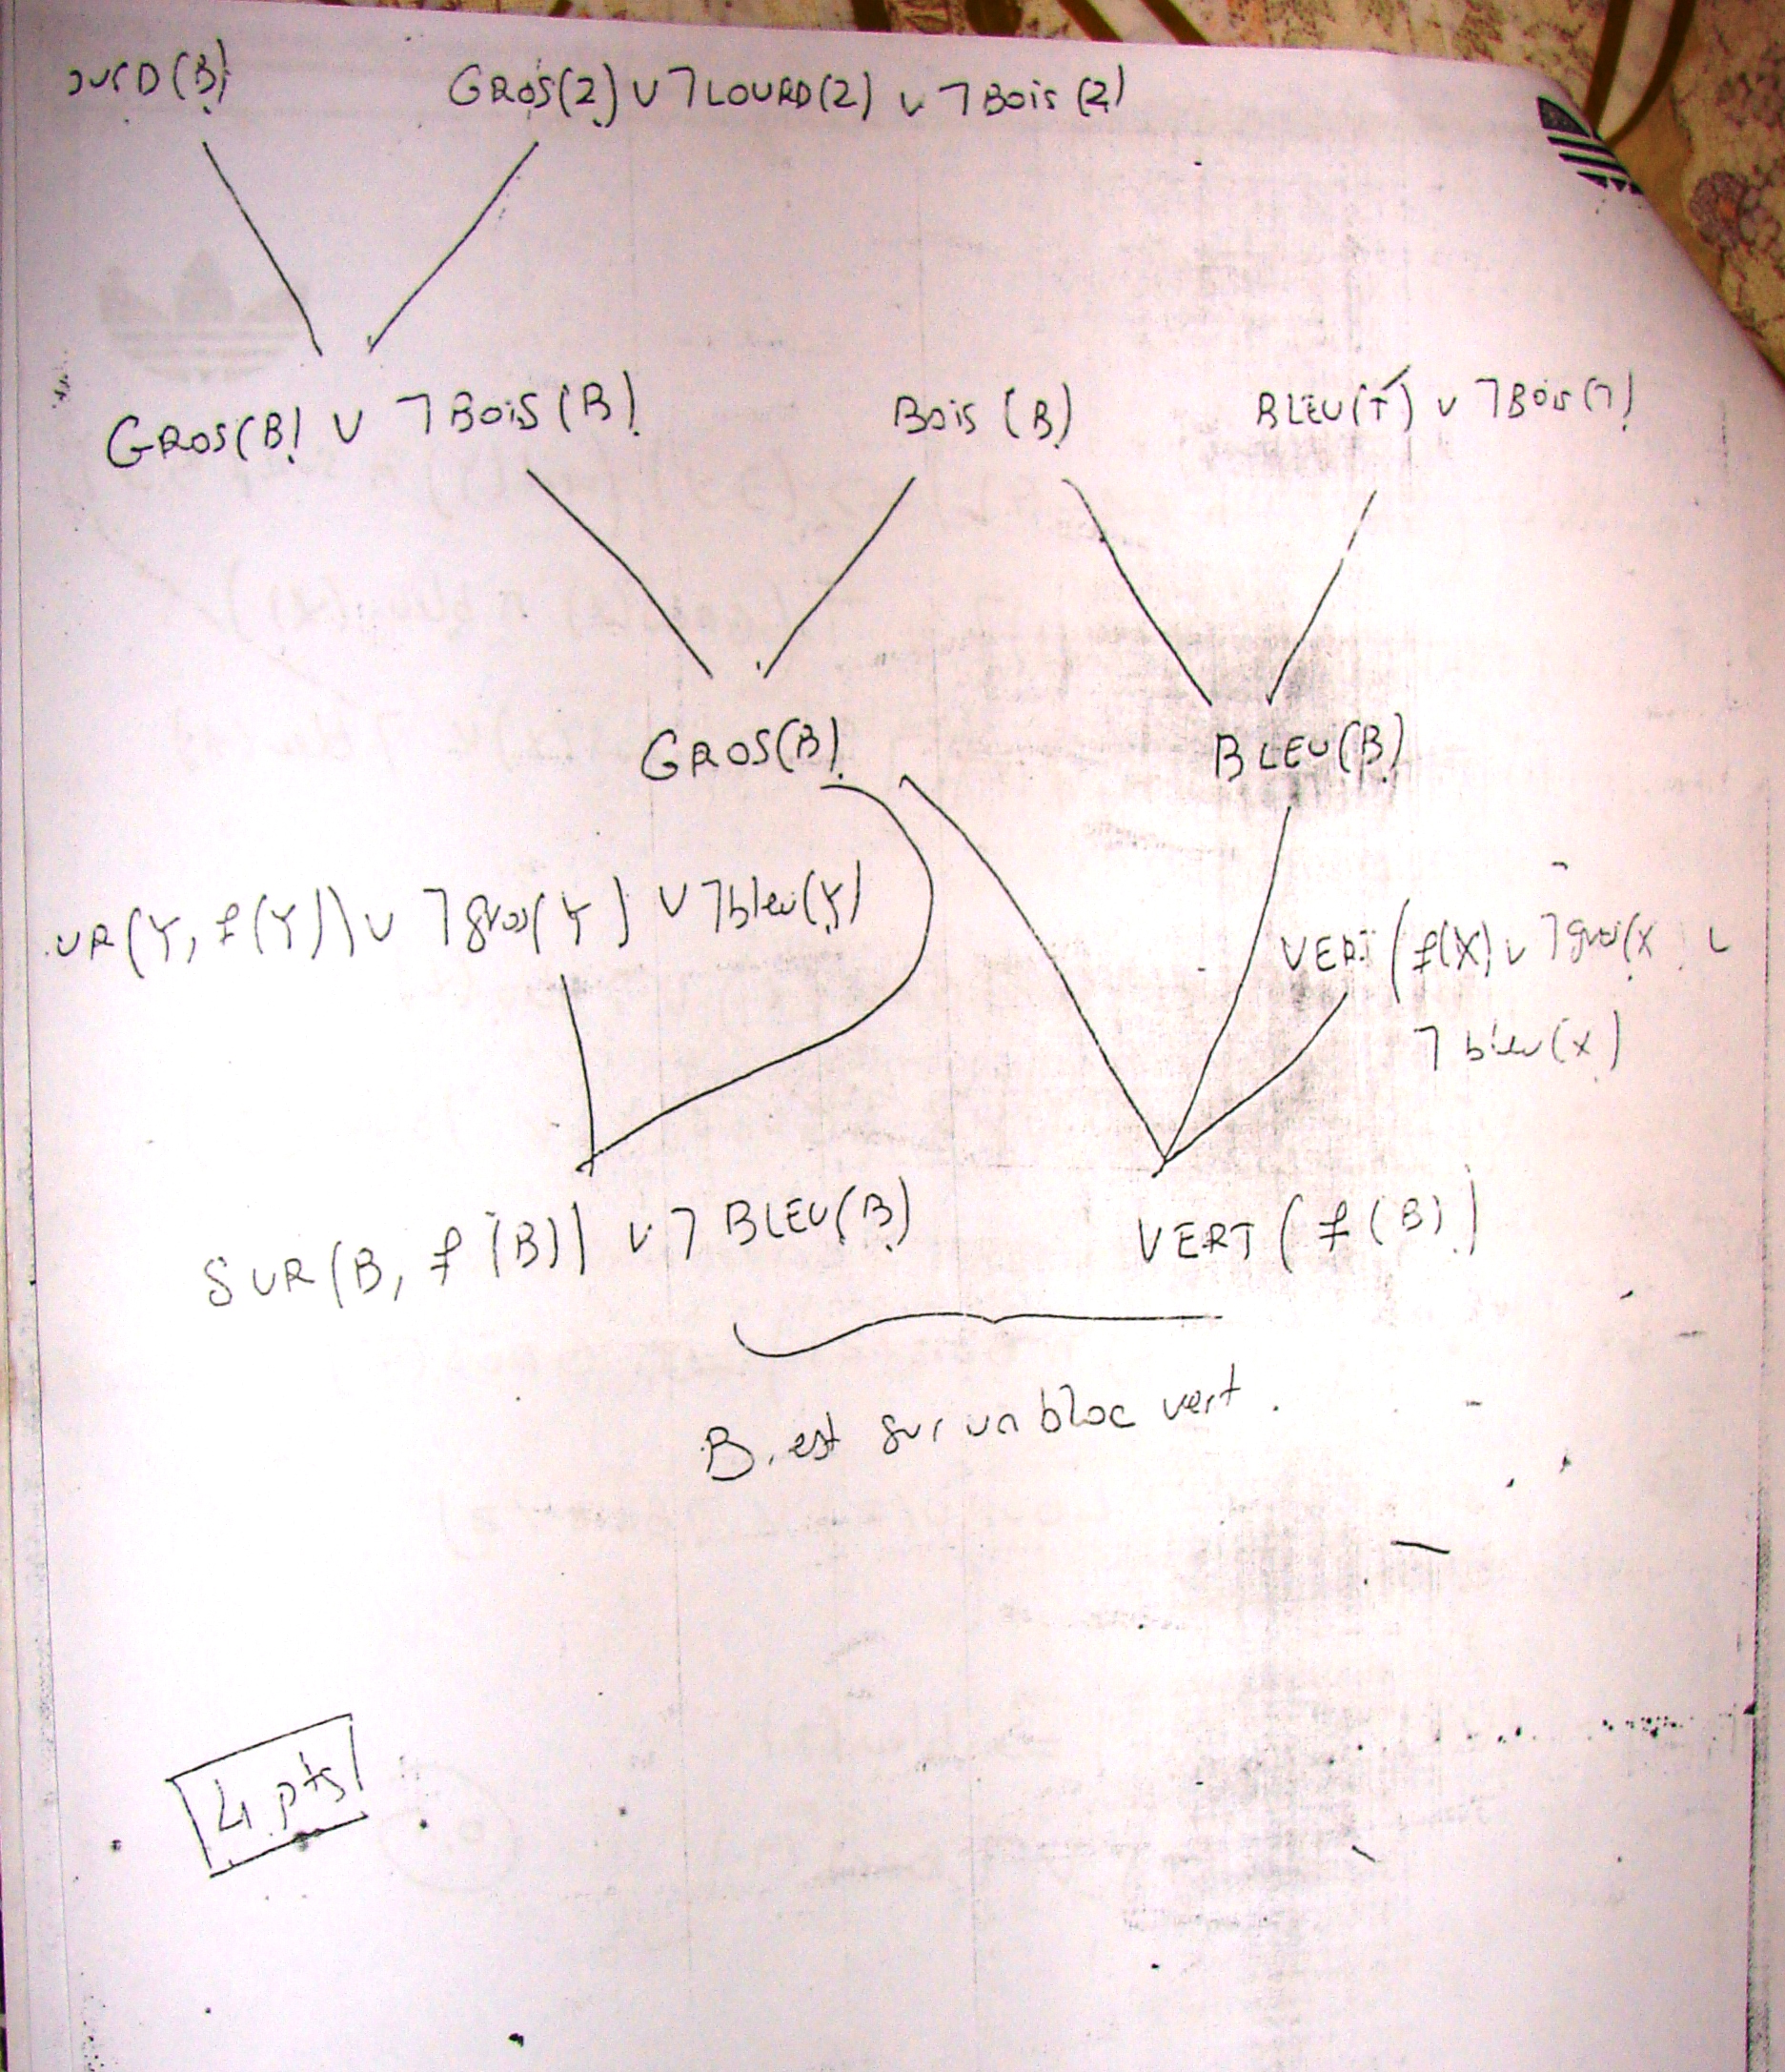 OURD(B) GROS(2) ∨ ¬LOURD(2) ∨ ¬BOIS(2)
GROS(B) ∨ ¬BOIS(B) BOIS(B) BLEU(T) ∨ ¬BOIS(T)
GROS(B) BLEU(B)
UR(Y, f(Y)) ∨ ¬gros(Y) ∨ ¬bleu(Y) VERT(f(X) ∨ ¬gros(X) ∨
¬bleu(X)
SUR(B, f(B)) ∨ ¬BLEU(B) VERT(f(B))
B est sur un bloc vert.
4 pts